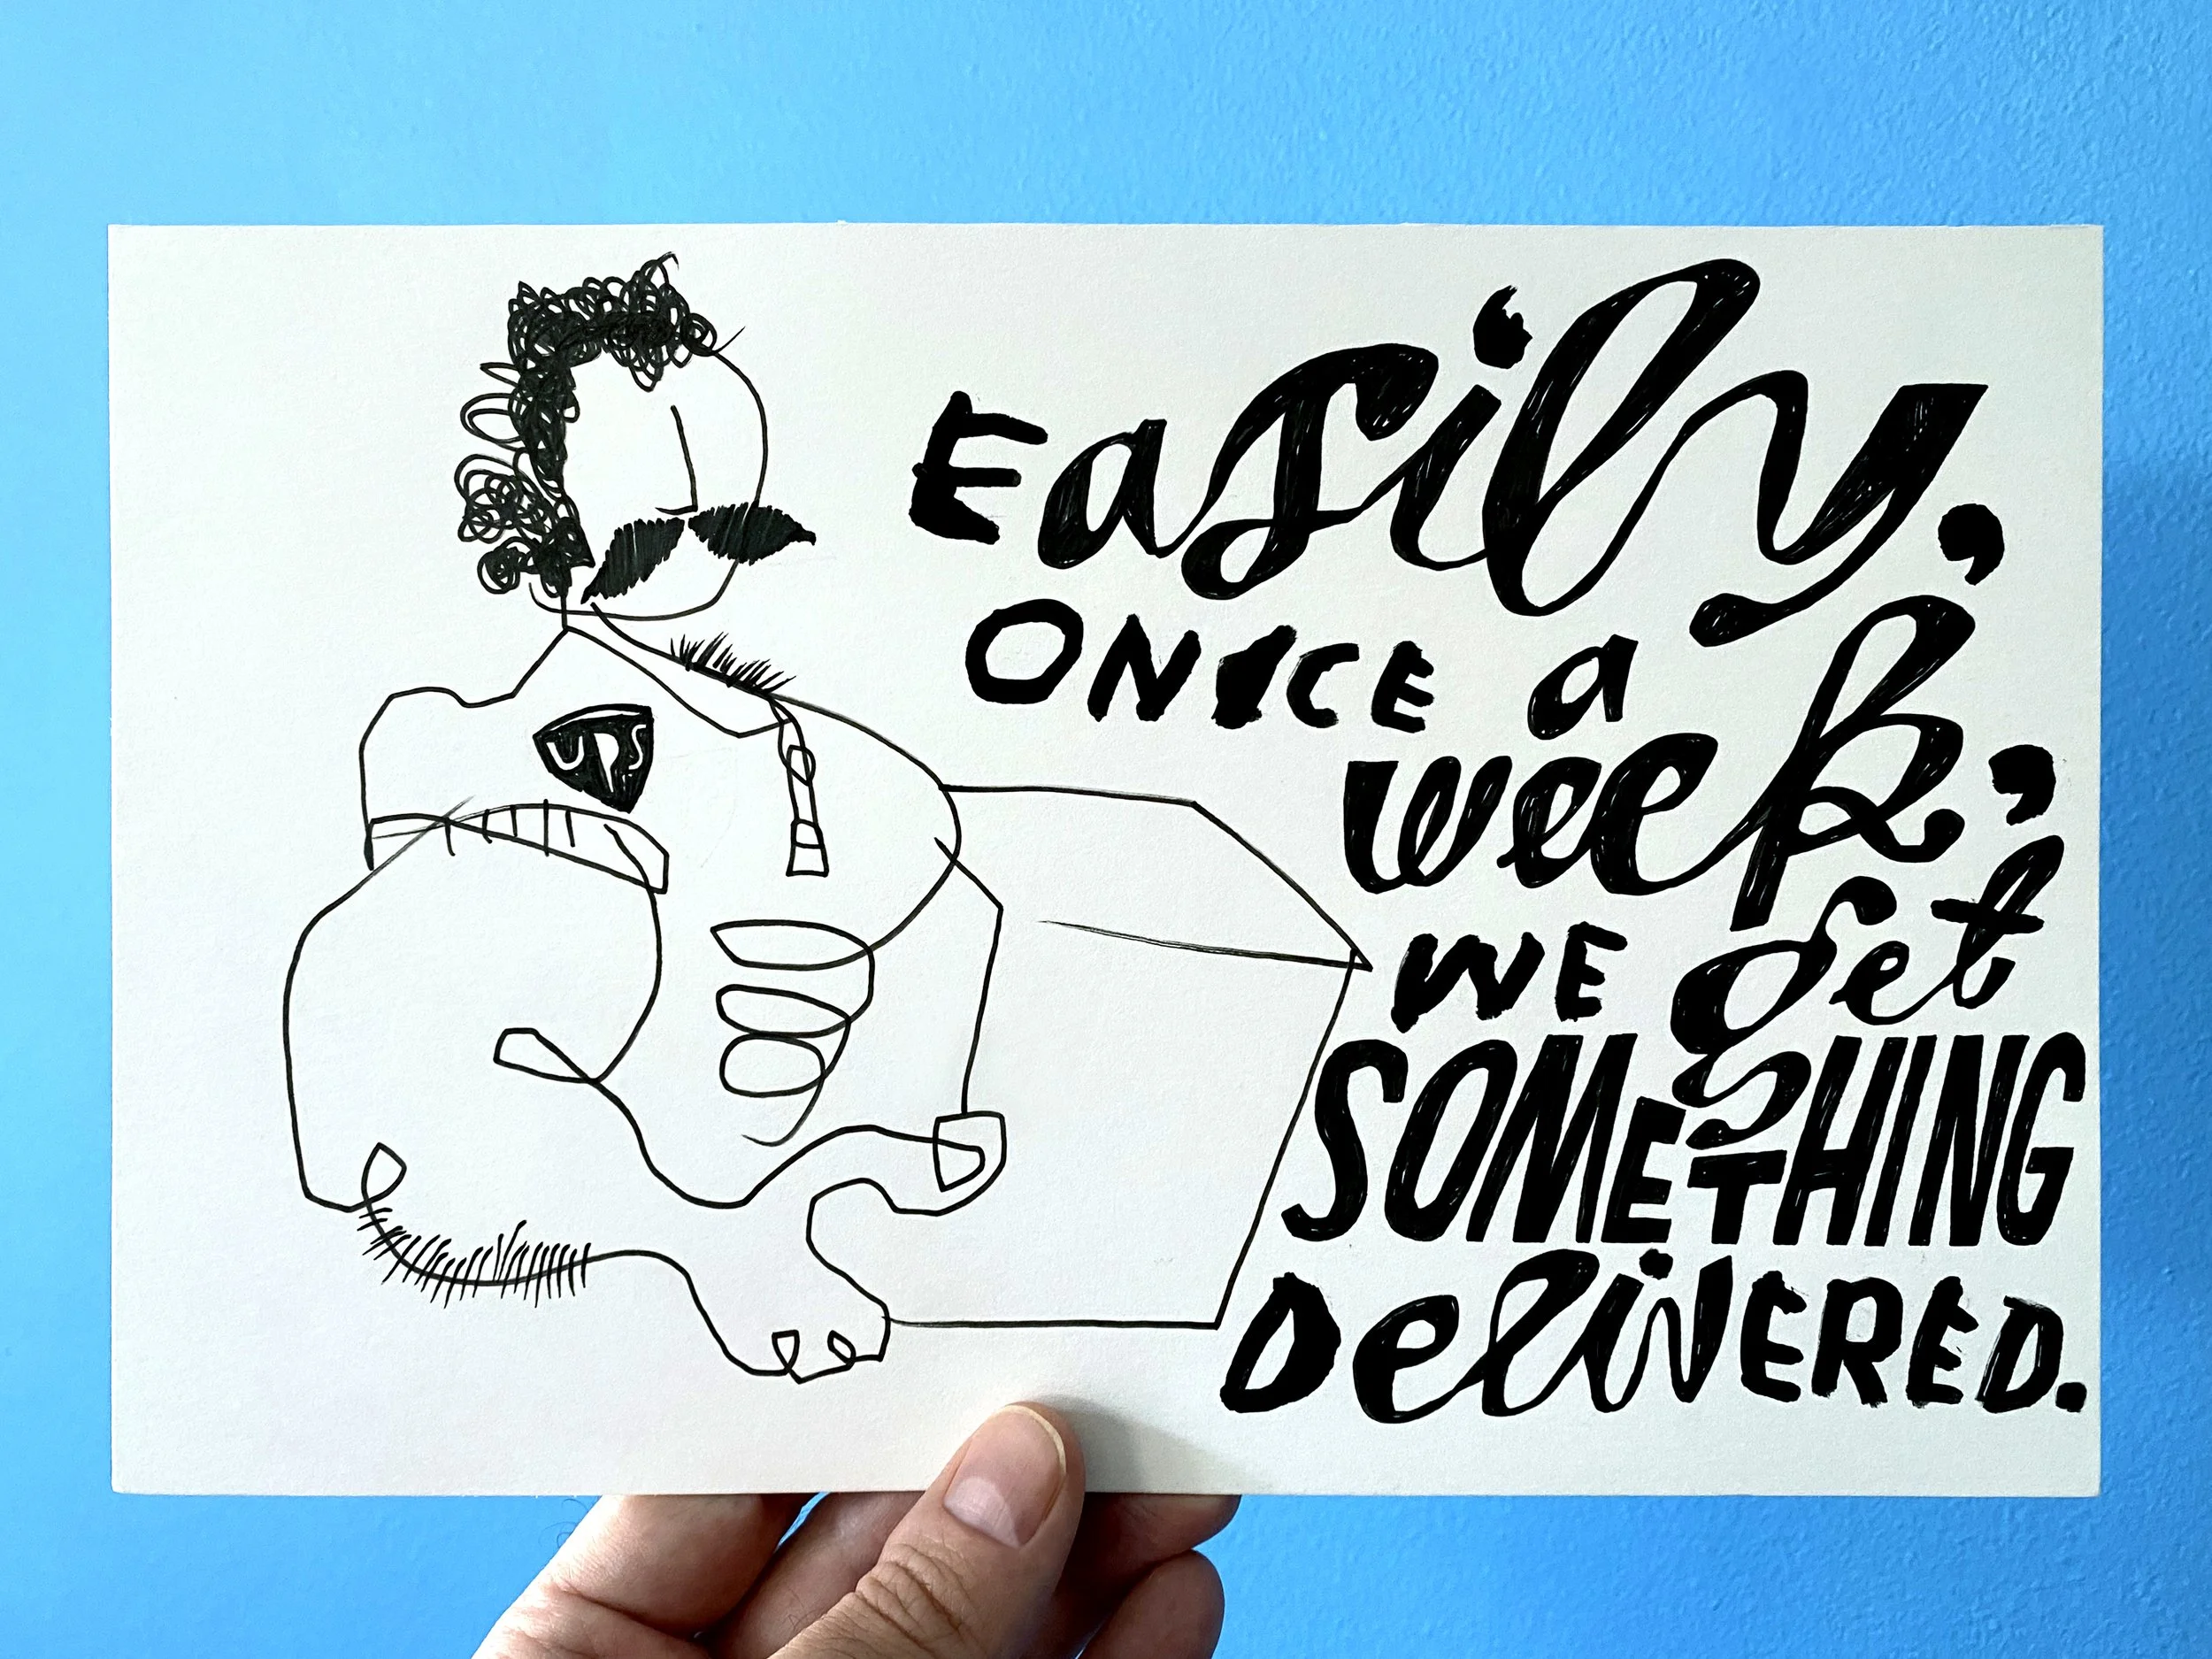 UPS
Easily,
ONCE a
week,
WE get
SOMETHING
DeliVERED.